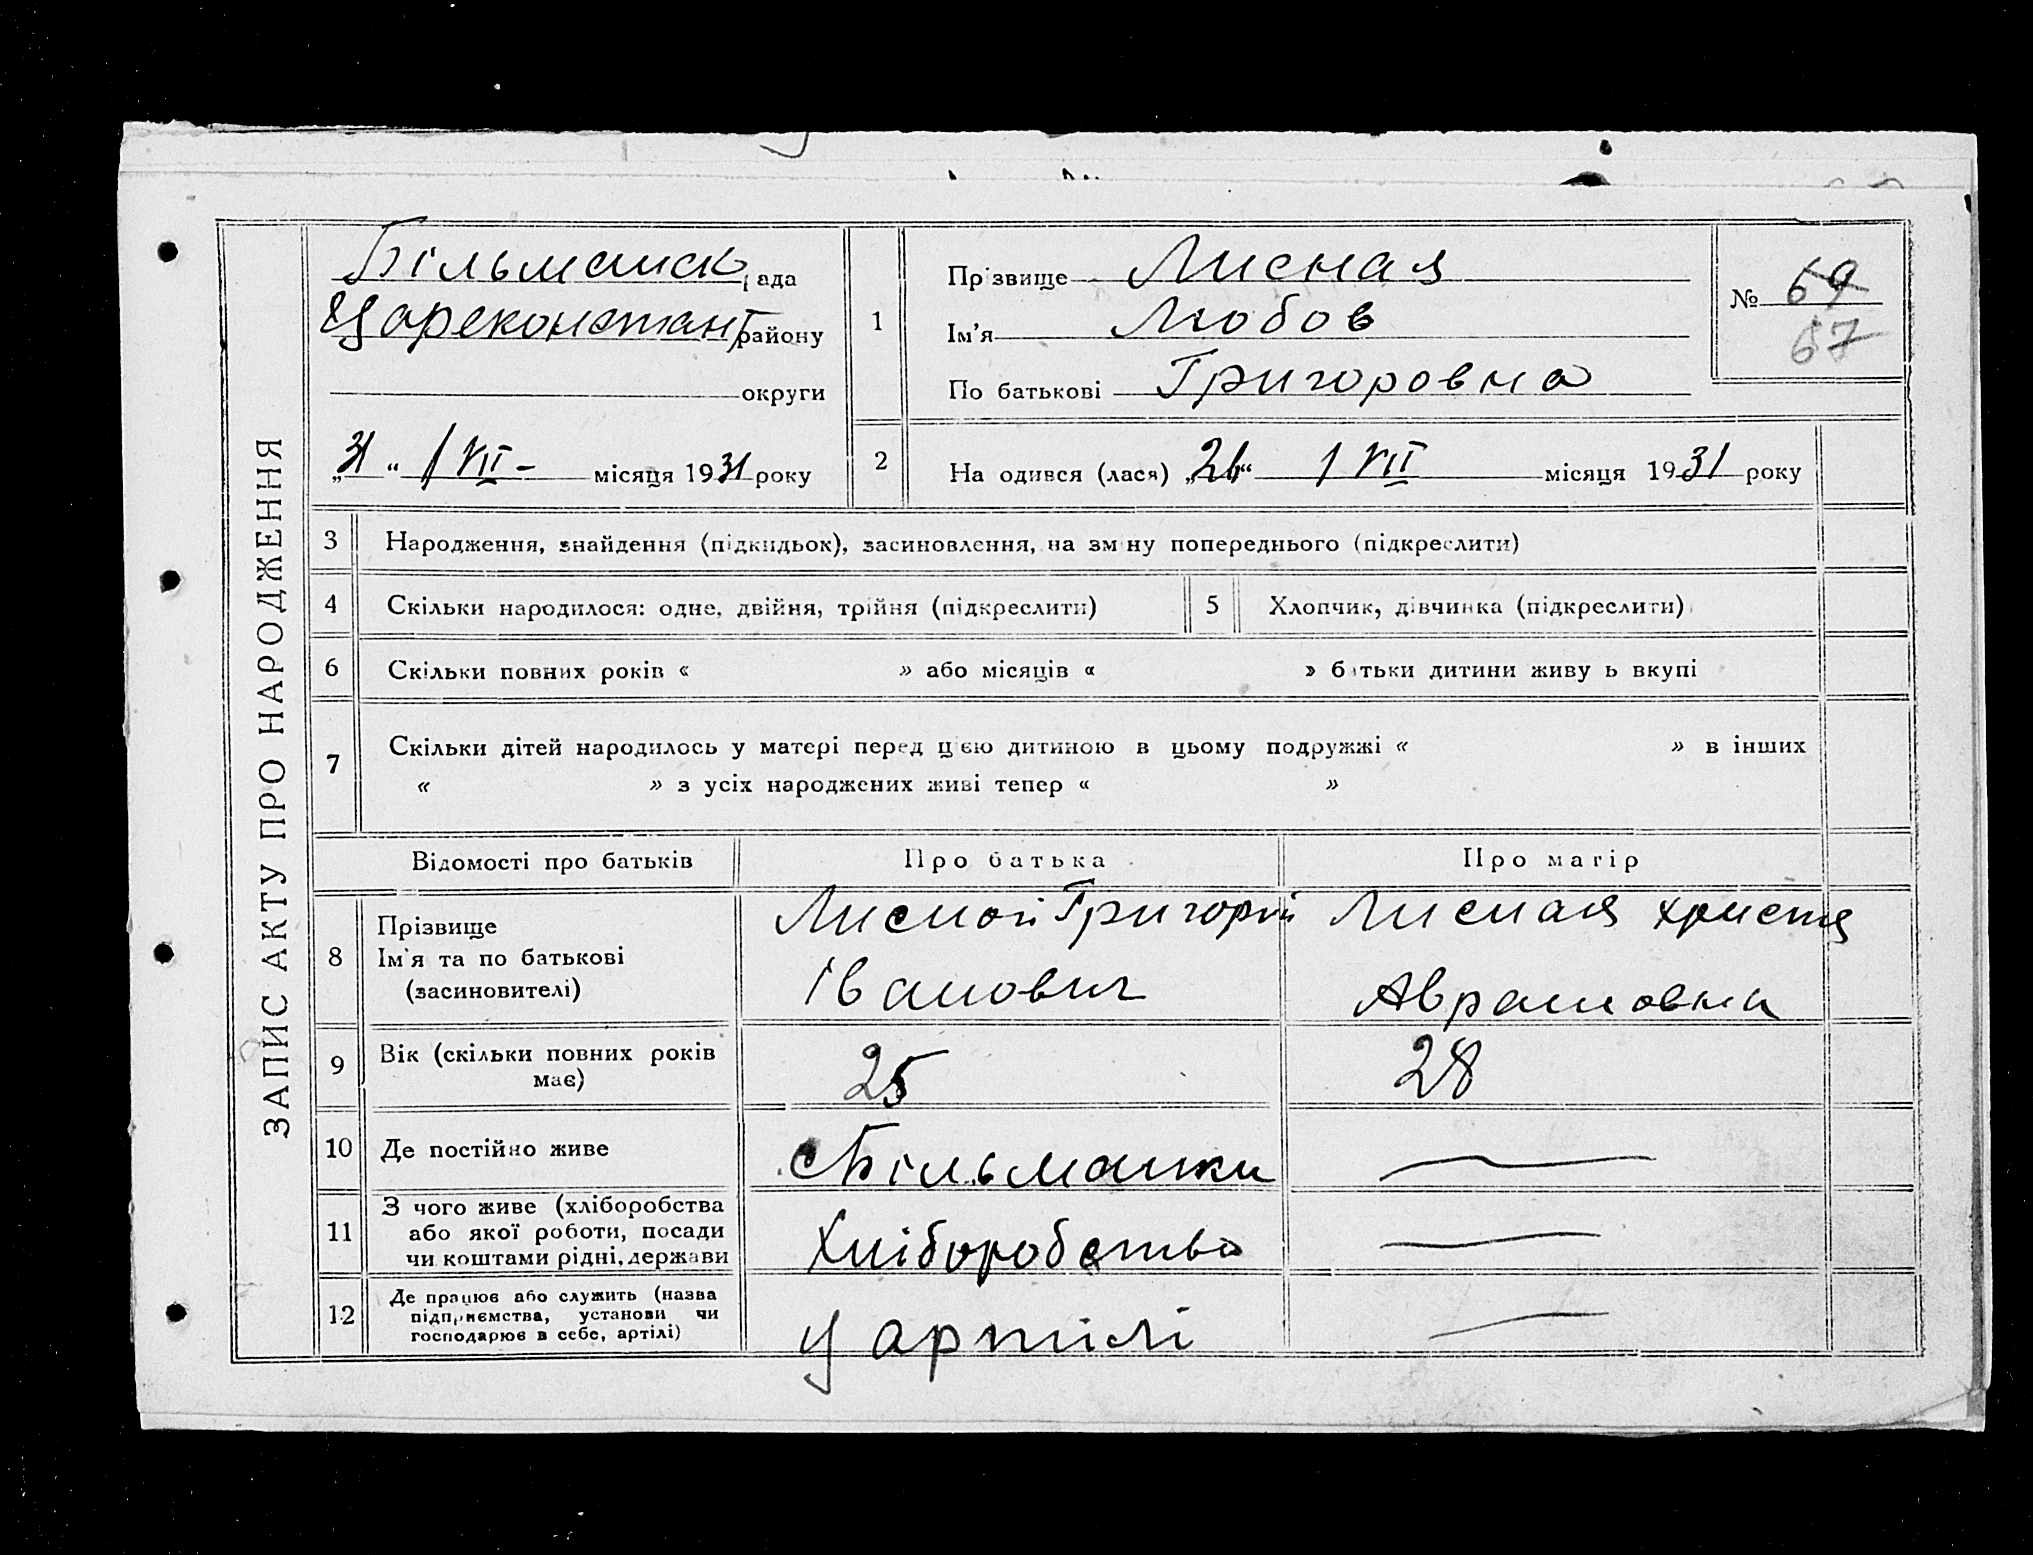 ЗАПИС АКТУ ПРО НАРОДЖЕННЯ
Більманск рада
Цареконстант району
округи
„31“ / VII - місяця 1931 року
1
Прізвище Лисная
Ім'я Любов
По батькові Григоровна
№ 69
67
2 На одився (лася) „26“ / VII місяця 1931 року
3 Народження, знайдення (підкидьок), засиновлення, на зміну попереднього (підкреслити)
4 Скільки народилося: одне, двійня, трійня (підкреслити)
5 Хлопчик, дівчинка (підкреслити)
6 Скільки повних років « » або місяців « » батьки дитини живу ь вкупі
7 Скільки дітей народилось у матері перед цією дитиною в цьому подружжі « » в інших
« » з усіх народжених живі тепер « »
Відомості про батьків Про батька Про матір
8 Прізвище
Ім'я та по батькові
(засиновителі)
Лисной Григорій
Іванович
Лисная христя
Аврамовна
9 Вік (скільки повних років
має)
25
28
10 Де постійно живе
с Більманки
11 З чого живе (хліборобства
або якої роботи, посади
чи коштами рідні, держави
Хліборобство
12 Де працює або служить (назва
підприємства, установи чи
господарює в себе, артілі)
у артілі